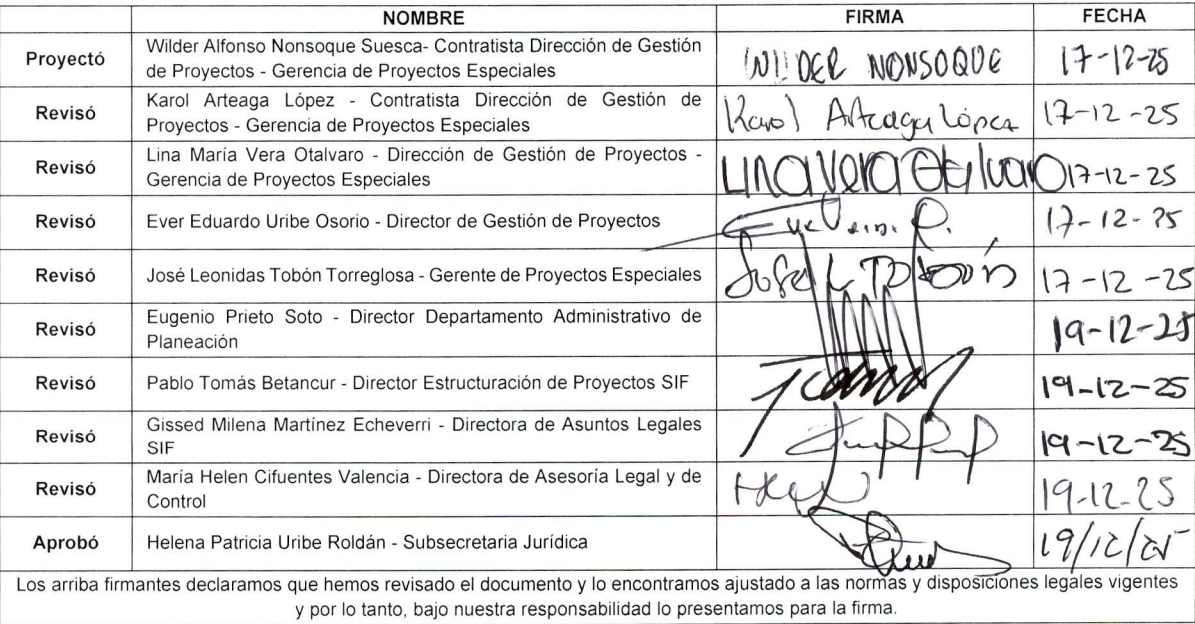 NOMBRE FIRMA FECHA
Proyectó Wilder Alfonso Nonsoque Suesca- Contratista Dirección de Gestión
de Proyectos - Gerencia de Proyectos Especiales WILDER NONSOQUE 17-12-25
Revisó Karol Arteaga López - Contratista Dirección de Gestión de
Proyectos - Gerencia de Proyectos Especiales Karol Arteaga López 17-12-25
Revisó Lina María Vera Otalvaro - Dirección de Gestión de Proyectos -
Gerencia de Proyectos Especiales Lina Vera Otalvaro 17-12-25
Revisó Ever Eduardo Uribe Osorio - Director de Gestión de Proyectos 17-12-25
Revisó José Leonidas Tobón Torreglosa - Gerente de Proyectos Especiales José L Tobón 17-12-25
Revisó Eugenio Prieto Soto - Director Departamento Administrativo de
Planeación 19-12-25
Revisó Pablo Tomás Betancur - Director Estructuración de Proyectos SIF 19-12-25
Revisó Gissed Milena Martínez Echeverri - Directora de Asuntos Legales
SIF 19-12-25
Revisó María Helen Cifuentes Valencia - Directora de Asesoría Legal y de
Control 19-12-25
Aprobó Helena Patricia Uribe Roldán - Subsecretaria Jurídica 19/12/25
Los arriba firmantes declaramos que hemos revisado el documento y lo encontramos ajustado a las normas y disposiciones legales vigentes
y por lo tanto, bajo nuestra responsabilidad lo presentamos para la firma.